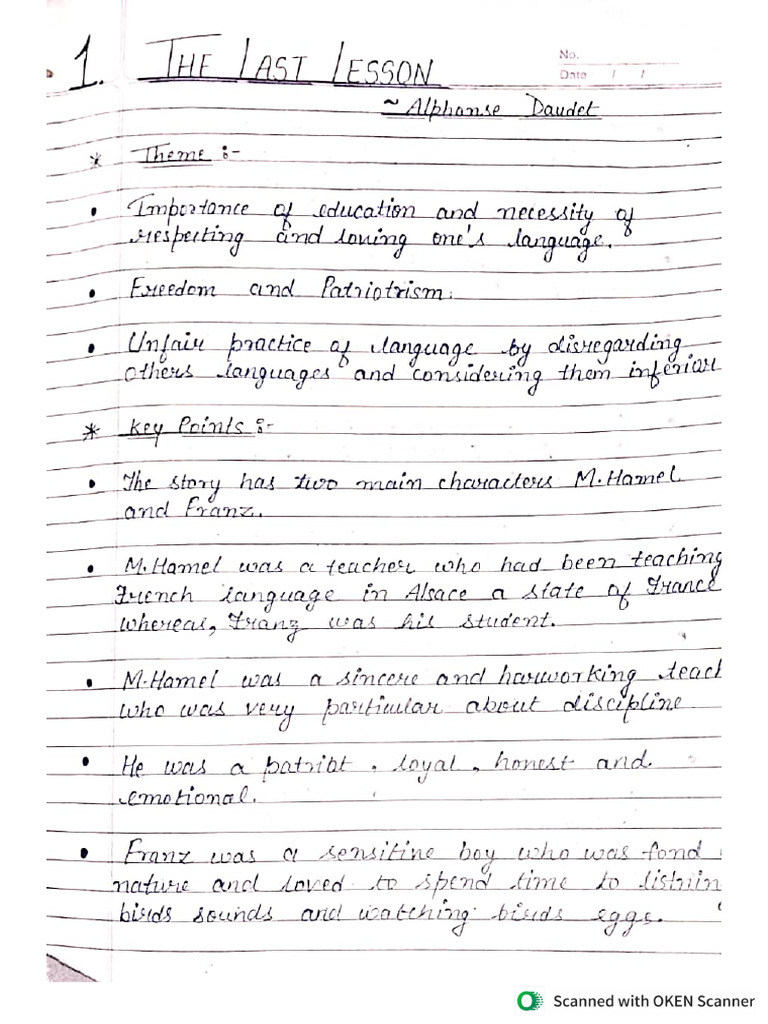 No.
Date / /
1. THE LAST LESSON
~ Alphonse Daudet
* Theme :-
• Importance of education and necessity of
respecting and loving one's language.
• Freedom and Patriotrism.
• Unfair practice of language by disregarding
others languages and considering them inferior
* Key Points :-
• The story has two main characters M.Hamel
and Franz.
• M.Hamel was a teacher who had been teaching
French language in Alsace a state of France
whereas, Franz was his student.
• M.Hamel was a sincere and harworking teach
who was very particular about discipline
• He was a patriot, loyal, honest and
emotional.
• Franz was a sensitine boy who was fond
nature and loved to spend time to listnin
birds sounds and watching birds eggs.
Scanned with OKEN Scanner